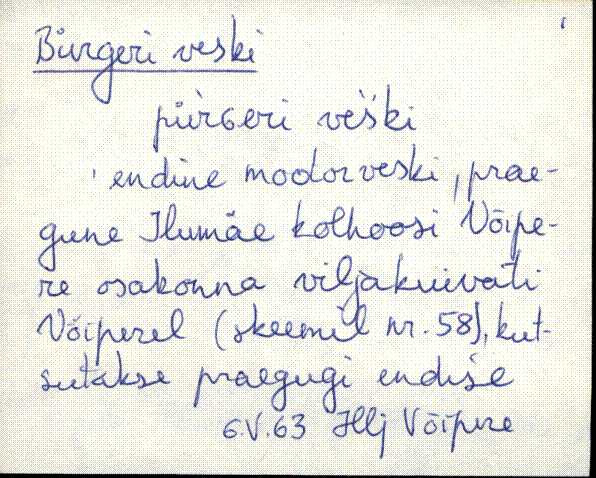 Bürgeri veski
pürGeri veski
endine modorveski, prae-
gune Ilumäe kolhoosi Võipe-
re osakonna viljakuivati
Võiperel (skeemil nr. 58), kut-
sutakse praegugi endise
6.V.63 Hlj Võipere